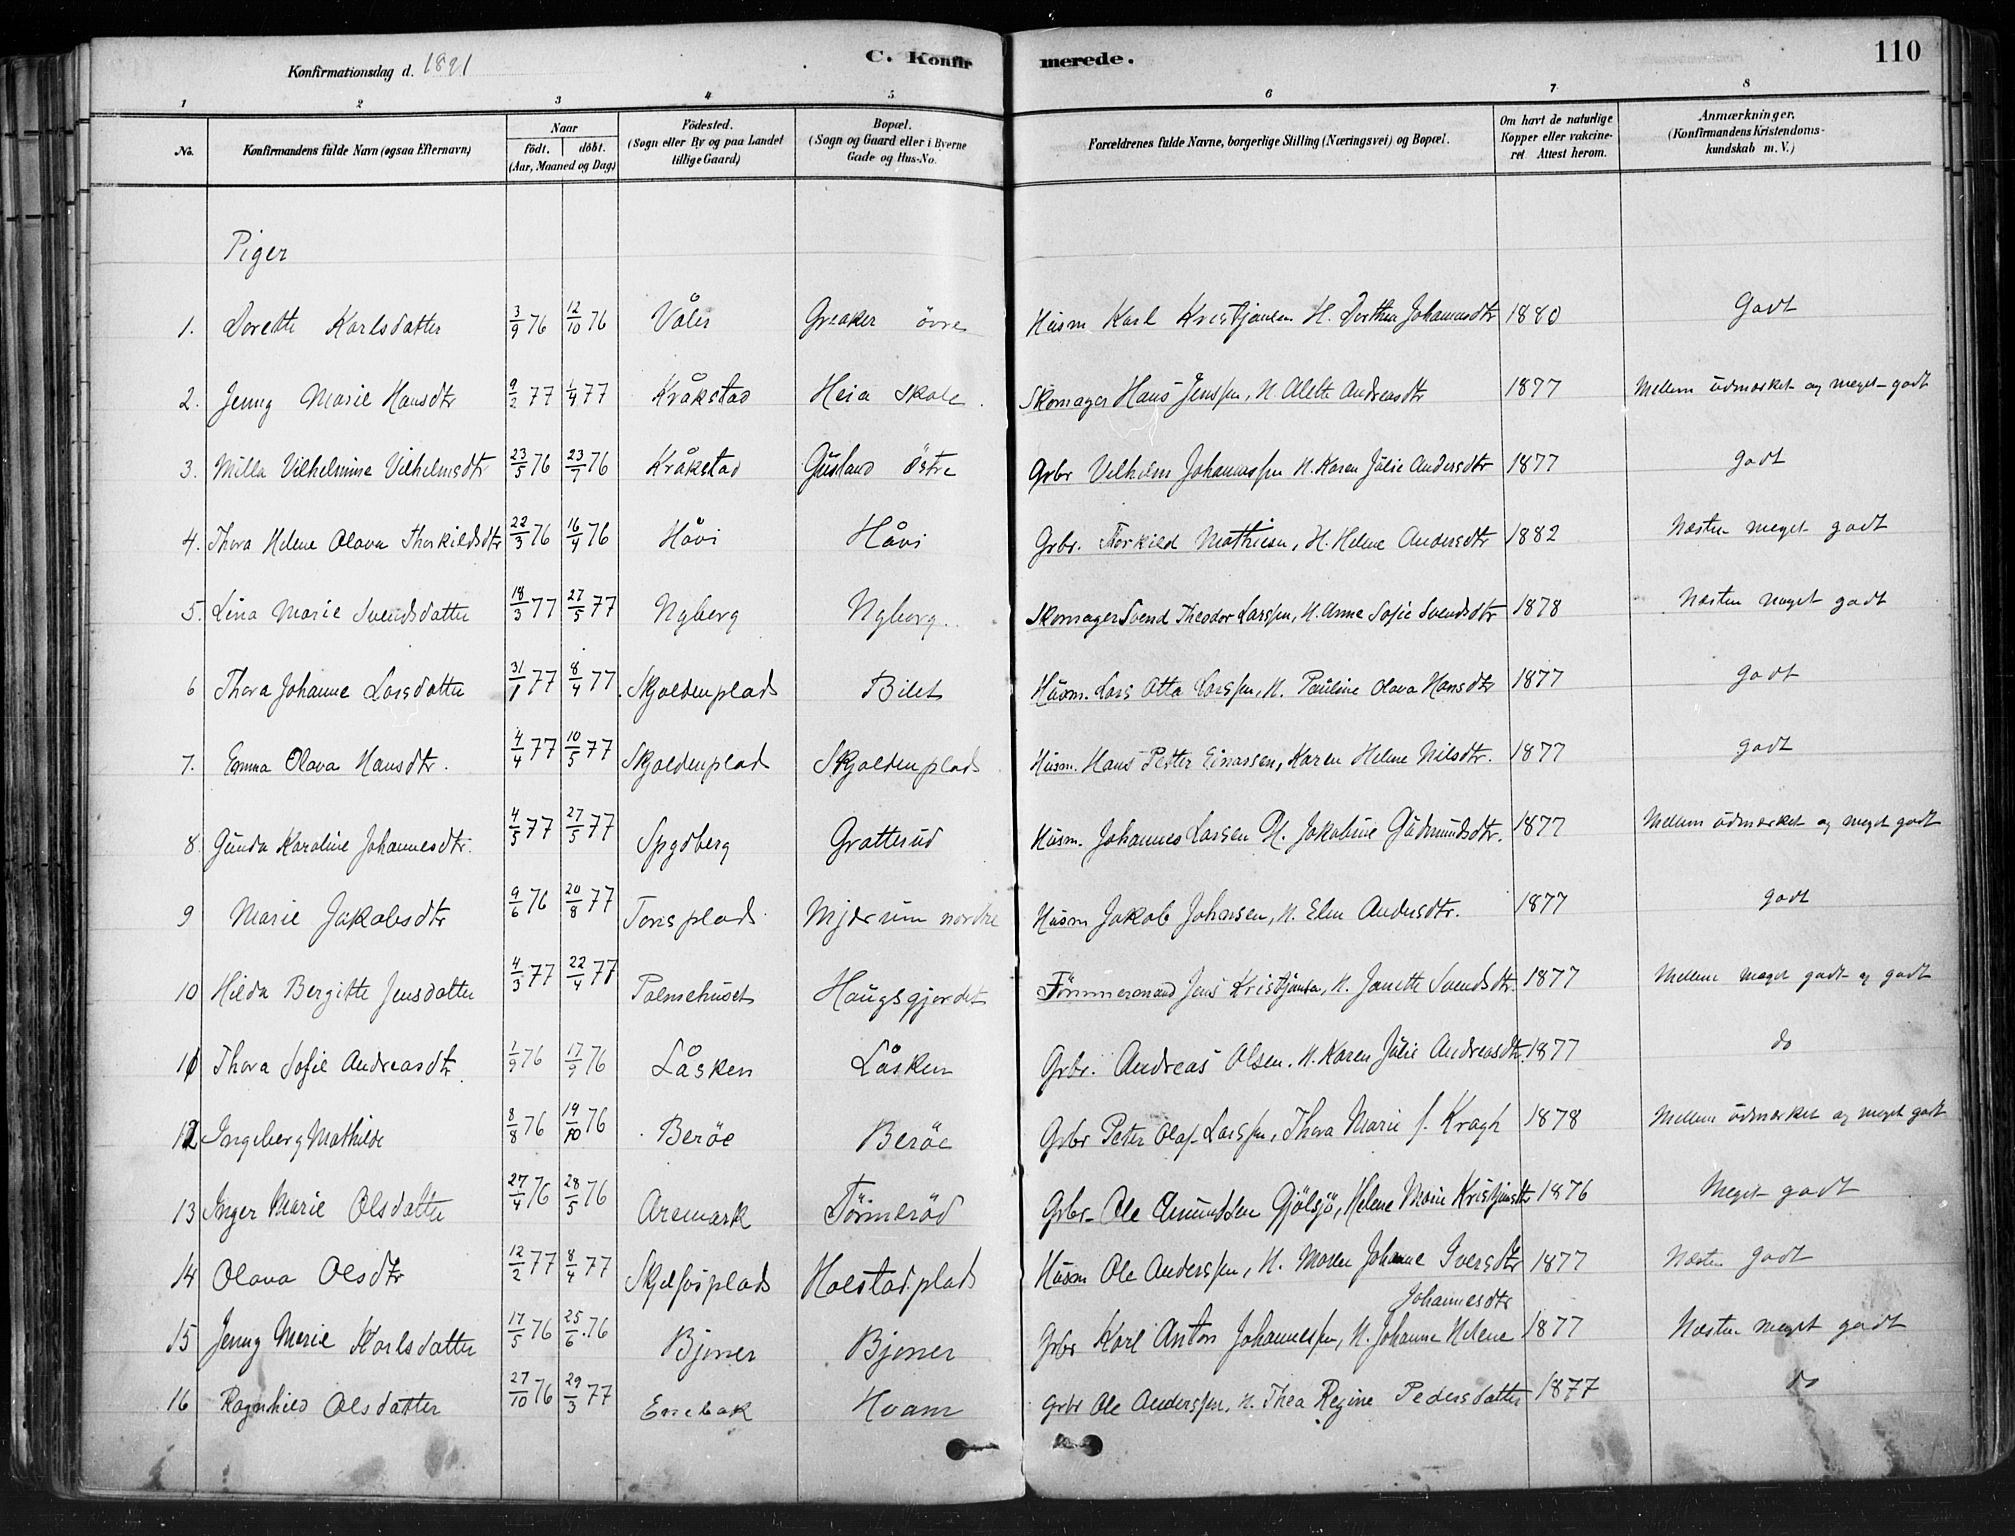 Konfirmationsdag d. 1891 C. Konfirmerede. 110
1 2 3 4 5 6 7 8
No. Konfirmandens fulde Navn (ogsaa Efternavn) Naar født. døbt. (Aar, Maaned og Dag) Fødested. (Sogn eller By og paa Landet tillige Gaard) Bopæl. (Sogn og Gaard eller i Byerne Gade og Hus-No. Forældrenes fulde Navne, borgerlige Stilling (Næringsvei) og Bopæl. Om havt de naturlige Kopper eller vakcineret Attest herom. Anmærkninger. (Konfirmandens Kristendomskundskab m. V.)
Piger
1. Dorette Karlsdatter 3/9 76 12/10 76 Våler Greaker övre Husm. Karl Kristjansen H. Dorthea Johannesdtr 1880 Godt
2. Jenny Marie Hansdtr 9/2 77 1/4 77 Kråkstad Heia Skole Skomager Hans Jenssen, H. Alette Andreasdtr 1877 Mellem udmærket og meget godt
3. Milla Vilhelmine Vilhelmsdtr 23/5 76 23/7 76 Kråkstad Gusland östre Grbr Vilhelm Johannessen H. Karen Julie Andersdtr 1877 godt
4. Thora Helene Olava Thorkildsdtr 22/3 76 16/4 76 Håvi Håvi Grbr. Thorkild Mathisen, H. Helene Andersdtr 1882 Næsten meget godt
5. Lina Marie Svendsdatter 18/3 77 27/5 77 Nyberg Nyborg Skomager Svend Theodor Larssen, H. Anne Sofie Svendsdtr 1878 Næsten meget godt
6 Thora Johanne Larsdatter 31/1 77 8/4 77 Skjoldenplads Bilet Husm. Lars Otto Larssen, H. Pauline Olava Hansdtr 1877 godt
7. Emma Olava Hansdtr. 4/4 77 10/5 77 Skjoldenplads Skjoldenplads Husm. Hans Petter Einarssen, Karen Helene Nilsdtr. 1877 godt
8. Gunda Karoline Johannesdtr. 4/5 77 27/5 77 Spydberg Grøtterud Husm. Johannes Larsen H. Jakobine Gudmundsdtr. 1877 Mellem udmærket og meget godt
9 Marie Jakobsdtr 9/6 76 20/8 77 Torisplads Mjærum nordre Husm Jakob Johnsen, H. Elen Andersdtr. 1877 godt
10 Hilda Bergitte Jensdatter 4/3 77 22/4 77 Palmehuset Haugsgjordet Tömmermand Jens Kristjansen, H. Janette Svendsdtr. 1877 Mellem meget godt og godt
11 Thora Sofie Andreasdtr 1/9 76 17/9 76 Låsken Låsken Grbr. Andreas Olsen. H. Karen Julie Andreasdtr. 1877 do
12 Ingeborg Mathilde 8/8 76 19/10 76 Beröe Beröe Grbr Peter Olaf Larssen, Thora Marie f. Kragh 1878 Mellem udmærket og meget godt
13 Inger Marie Olsdatter 27/4 76 28/5 76 Aremark Tömmeröd Grbr. Ole Amundsen Gjölsjö, Helene Marie Kristjansdtr 1876 Meget godt
14 Olava Olsdtr 12/2 77 8/4 77 Skjelfosplads Holstadplads Husm Ole Anderssen, H. Maren Johanne Iversdtr 1877 Næsten godt
15 Jenny Marie Karlsdatter 17/5 76 25/6 76 Bjoner Bjoner Grbr Karl Anton Johannessen, H. Johanne Helene Johannesdtr 1877 Næsten meget godt
16 Ragnhild Olsdatter 27/10 76 29/3 77 Enebak Hvam Grbr Ole Anderssen, H. Thea Regine Pedersdatter 1877 do